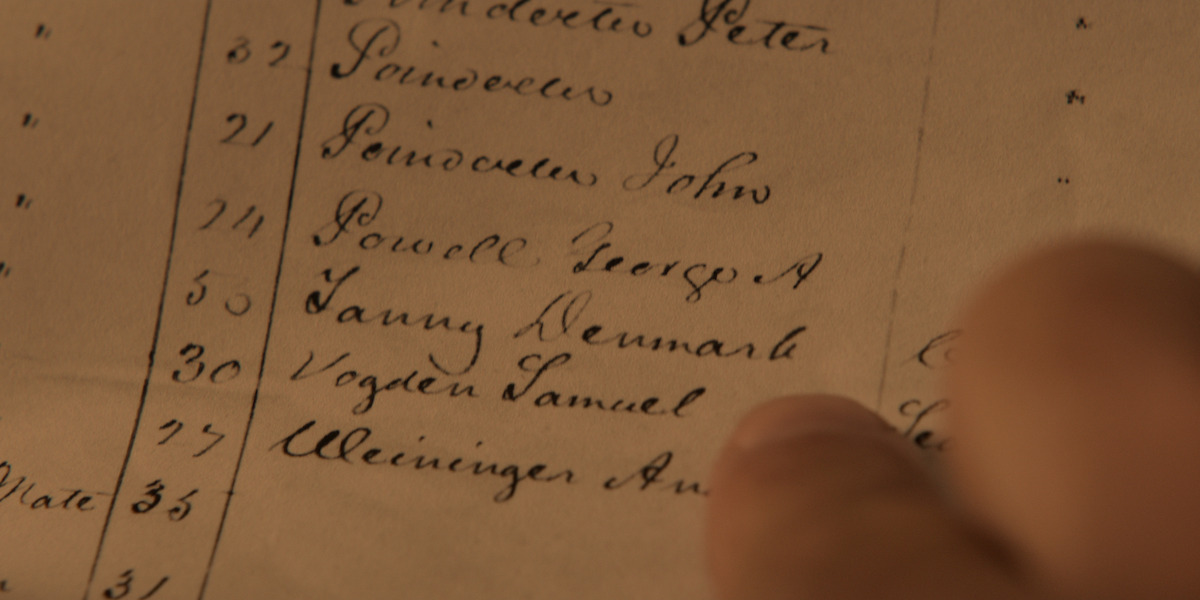 Peter "
" 32 Poindexter "
" 21 Poindexter John "
" 24 Powell George A
" 50 Tanny Denmark
30 Vogden Samuel
27 Weininger An
Mate 35
31